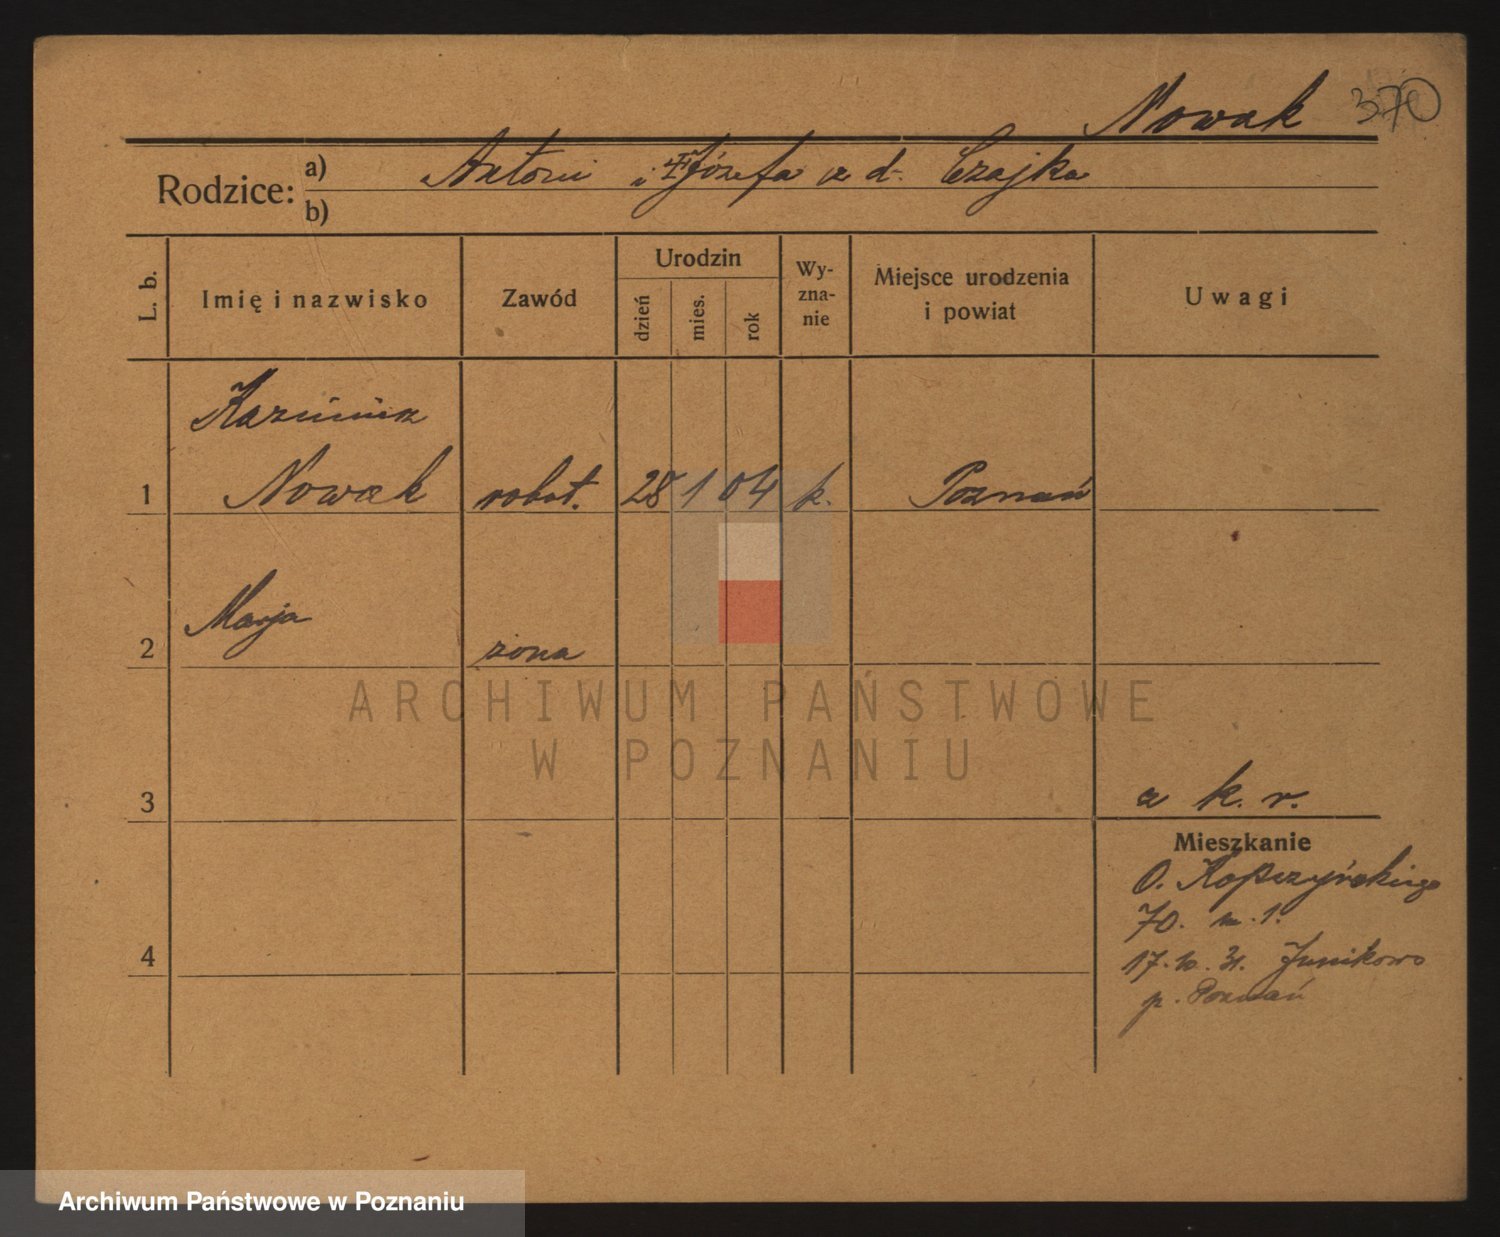 Nowak 370
Rodzice: a) Antoni i Józefa z d. Czajka
b)
L. b. Imię i nazwisko Zawód Urodzin dzień mies. rok Wy-zna-nie Miejsce urodzenia i powiat Uwagi
Kazimierz
1 Nowak robot. 28 1 04 k. Poznań
Marja
2 żona
ARCHIWUM PAŃSTWOWE
W POZNANIU
3 z k. r.
Mieszkanie
O. Kopczyńskiego
70. m. 1.
4 17. 10. 31. Junikowo
p. Poznań
Archiwum Państwowe w Poznaniu